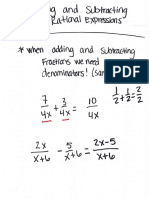 ng and Subtracting
Rational Expressions
* when adding and subtracting
Fractions we need
denominators! (sam
7/4x + 3/4x = 10/4x
1/2 + 1/2 = 2/2
2x/x+6 - 5/x+6 = 2x-5/x+6